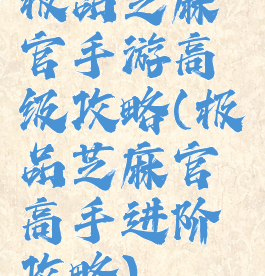 极品芝麻
官手游高
级攻略(极
品芝麻官
高手进阶
攻略)